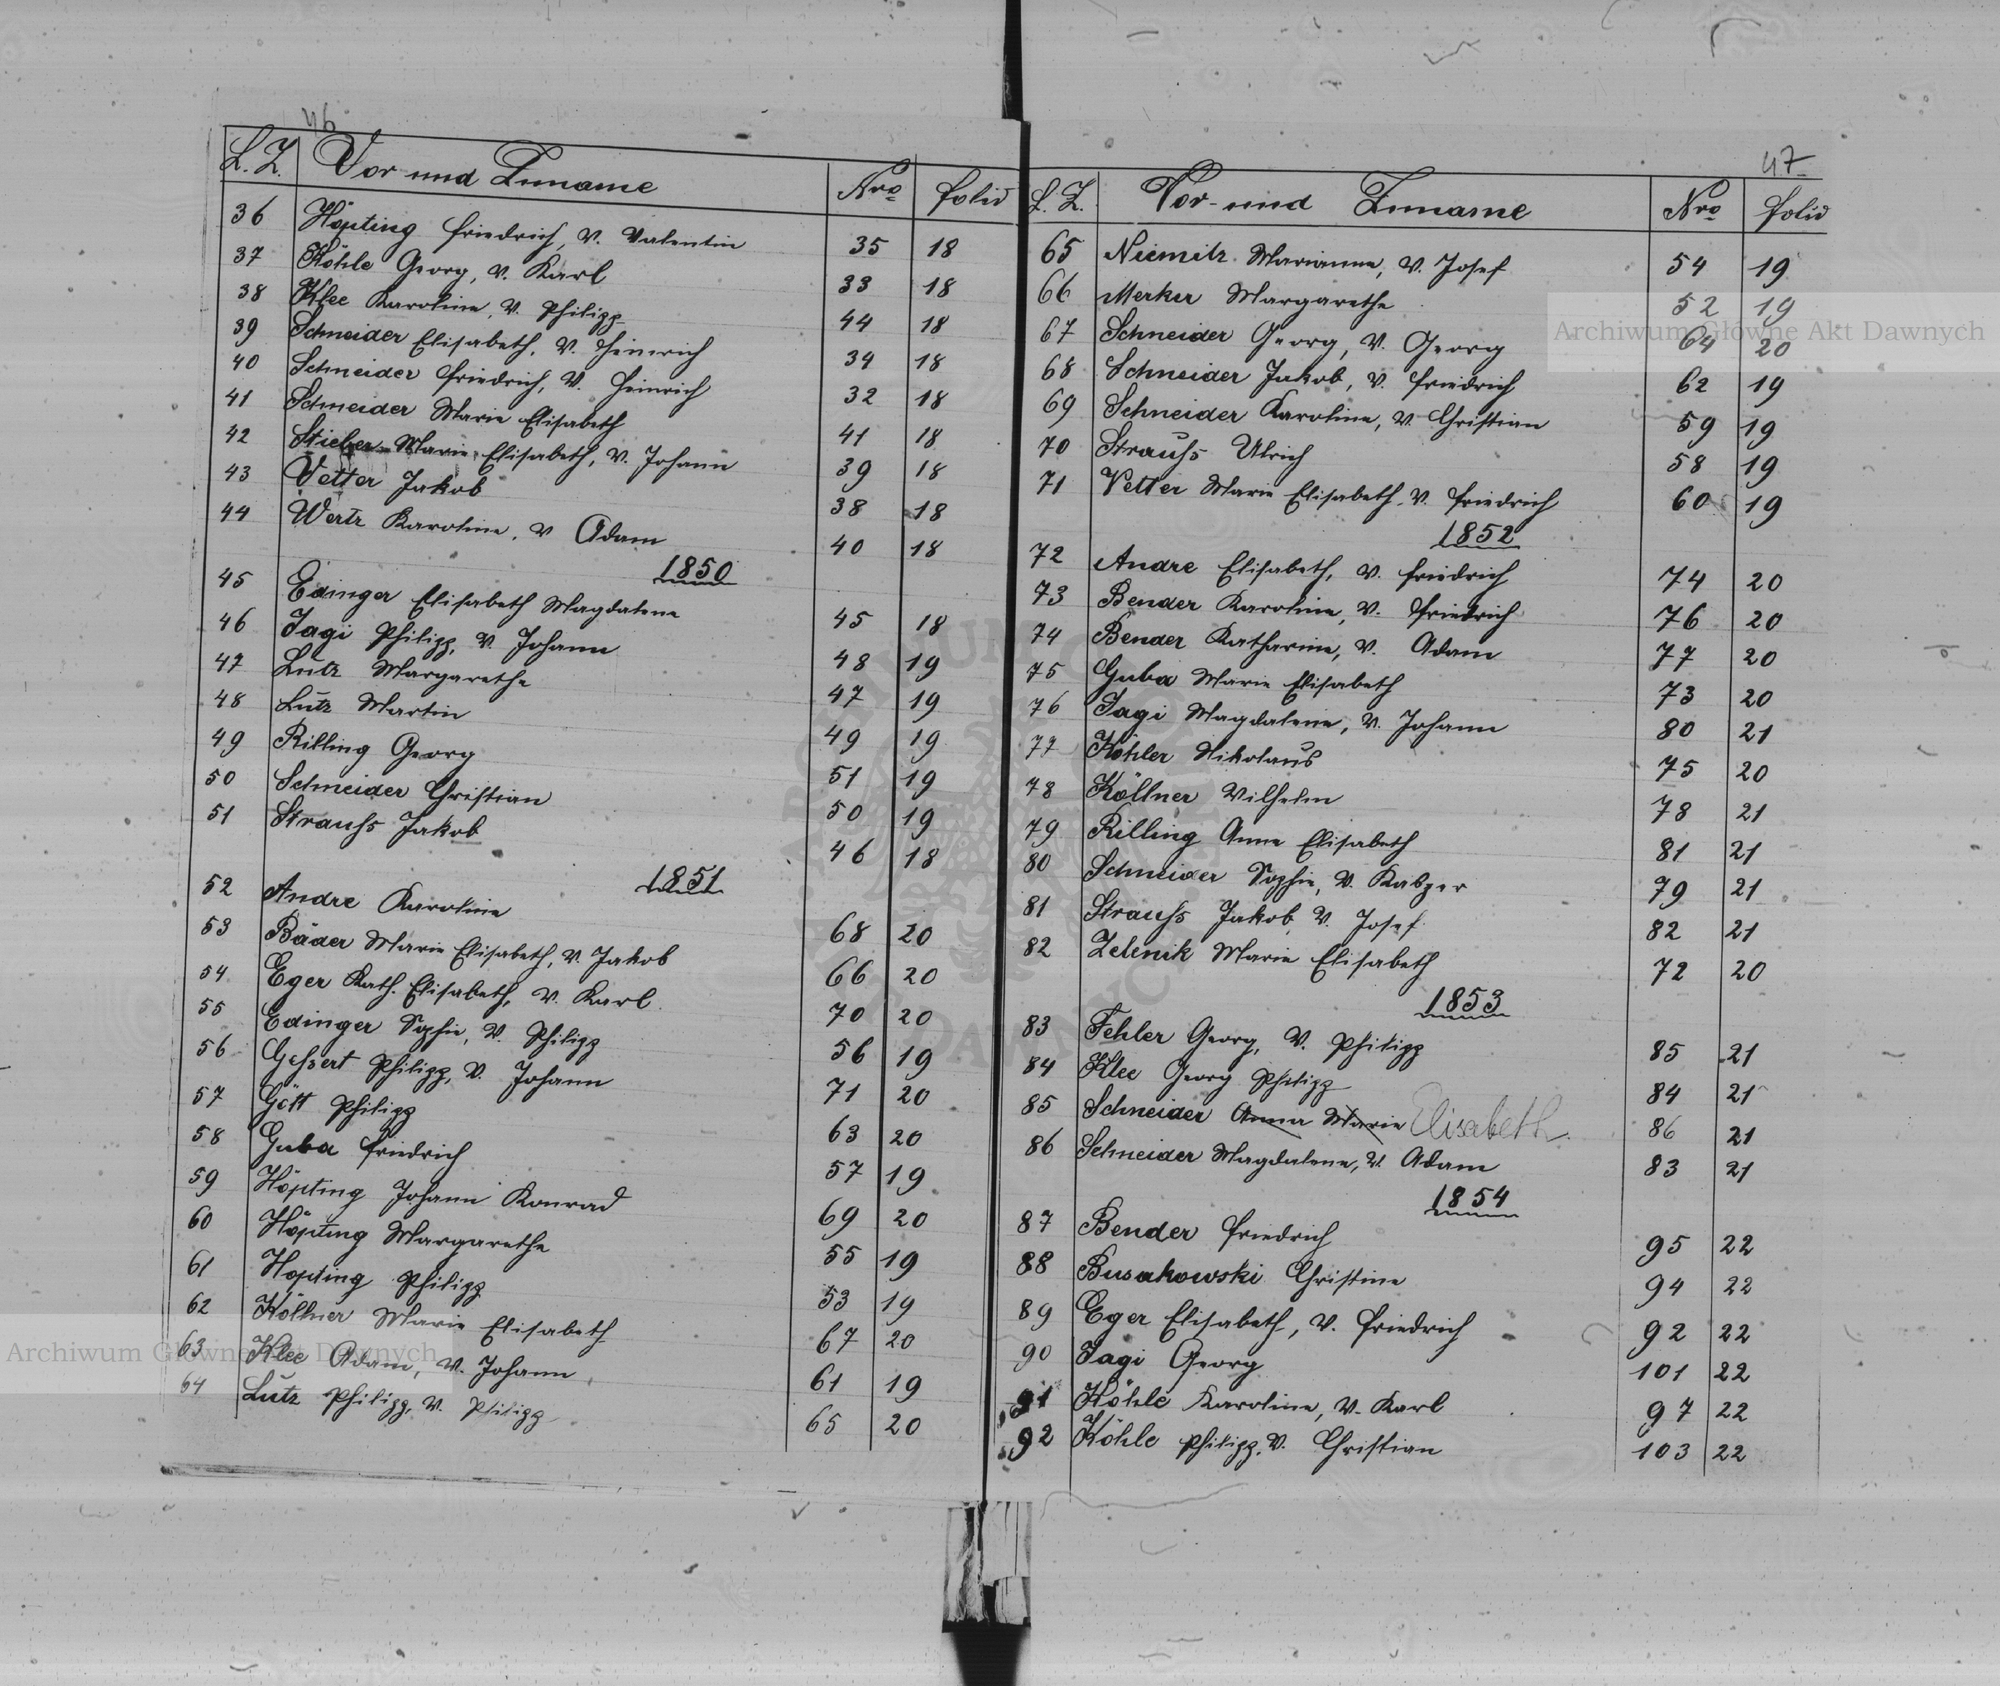 46
L.Z. Vor und Zuname Nro folio
36 Höpting Friedrich, v. Valentin 35 18
37 Köhle Georg, v. Karl 33 18
38 Klee Karoline, v. Philipp 44 18
39 Schneider Elisabeth, v. Heinrich 34 18
40 Schneider Friedrich, v. Heinrich 32 18
41 Schneider Marie Elisabeth 41 18
42 Stieber Marie Elisabeth, v. Johann 39 18
43 Vetter Jakob 38 18
44 Wertz Karoline, v Adam 40 18
1850
45 Edinger Elisabeth Magdalene 45 18
46 Jagi Philipp, v. Johann 48 19
47 Lutz Margarethe 47 19
48 Lutz Martin 49 19
49 Rilling Georg 51 19
50 Schneider Christian 50 19
51 Strauß Jakob 46 18
1851
52 Andre Karoline 68 20
53 Bäder Marie Elisabeth, v. Jakob 66 20
54 Eger Kath. Elisabeth, v. Karl 70 20
55 Edinger Sophie, v. Philipp 56 19
56 Geßert Philipp, v. Johann 71 20
57 Gött Philipp 63 20
58 Guba Friedrich 57 19
59 Höpting Johann Konrad 69 20
60 Höpting Margarethe 55 19
61 Höpting Philipp 53 19
62 Köllner Marie Elisabeth 67 20
63 Klee Adam, v. Johann 61 19
64 Lutz Philipp, v. Philipp 65 20
47
L.Z. Vor- und Zuname Nro folio
65 Niemitz Marianne, v. Josef 54 19
66 Merker Margarethe 52 19
67 Schneider Georg, v. Georg 64 20
68 Schneider Jakob, v. Friedrich 62 19
69 Schneider Karoline, v. Christian 59 19
70 Strauß Ulrich 58 19
71 Vetter Marie Elisabeth, v. Friedrich 60 19
1852
72 Andre Elisabeth, v. Friedrich 74 20
73 Bender Karoline, v. Friedrich 76 20
74 Bender Katharine, v. Adam 77 20
75 Guba Marie Elisabeth 73 20
76 Jagi Magdalene, v. Johann 80 21
77 Köhler Nikolaus 75 20
78 Köllner Wilhelm 78 21
79 Rilling Anne Elisabeth 81 21
80 Schneider Sophie, v. Kasper 79 21
81 Strauß Jakob, v. Josef 82 21
82 Zelenik Marie Elisabeth 72 20
1853
83 Fehler Georg, v. Philipp 85 21
84 Klee Georg Philipp 84 21
85 Schneider Anna Marie Elisabeth 86 21
86 Schneider Magdalene, v. Adam 83 21
1854
87 Bender Friedrich 95 22
88 Busakowski Christine 94 22
89 Eger Elisabeth, v. Friedrich 92 22
90 Jagi Georg 101 22
91 Köhle Karoline, v. Karl 97 22
92 Köhle Philipp, v. Christian 103 22
Archiwum Główne Akt Dawnych
Archiwum Główne Akt Dawnych